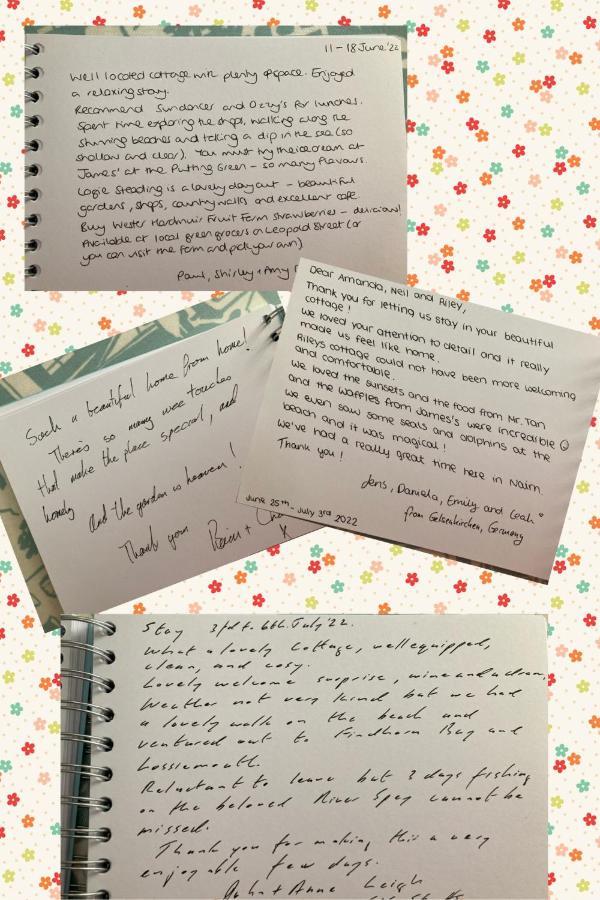 11 - 18 June '22
Well located cottage with plenty of space. Enjoyed
a relaxing stay.
Recommend Sundancer and Ozzy's for lunches.
Spent time exploring the shops, walking along the
stunning beaches and taking a dip in the sea (so
shallow and clear). You must try the icecream at
James' at the Putting Green - so many flavours.
Logie Steading is a lovely day out - beautiful
gardens, shops, country walks and excellent café.
Buy Wester Hardmuir Fruit Farm strawberries - delicious!
Available at local green grocers on Leopold Street (or
you can visit the farm and pick your own)
Paul, Shirley + Amy
Dear Amanda, Neil and Riley,
Thank you for letting us stay in your beautiful
cottage!
We loved your attention to detail and it really
made us feel like home.
Rileys cottage could not have been more welcoming
and comfortable.
We loved the sunsets and the food from Mr. Tan
and the waffles from James's were incredible ☺
We even saw some seals and dolphins at the
beach and it was magical!
We've had a really great time here in Nairn.
Thank you!
Jens, Daniela, Emily and Leah
from Gelsenkirchen, Germany
June 25th - July 3rd 2022
Such a beautiful home from home!
There's so many wee touches
that make the place special, and
homely
and the garden is heaven!
Thank you
X
Stay 3rd to 6th July '22.
What a lovely cottage, well equipped,
clean, and cosy.
Lovely welcome surprise, wine and a dram,
Weather not very kind but we had
a lovely walk on the beach and
ventured out to Findhorn Bay and
Lossiemouth.
Reluctant to leave but 3 days fishing
on the beloved River Spey cannot be
missed.
Thank you for making this a very
enjoyable few days.
John + Anne Leigh